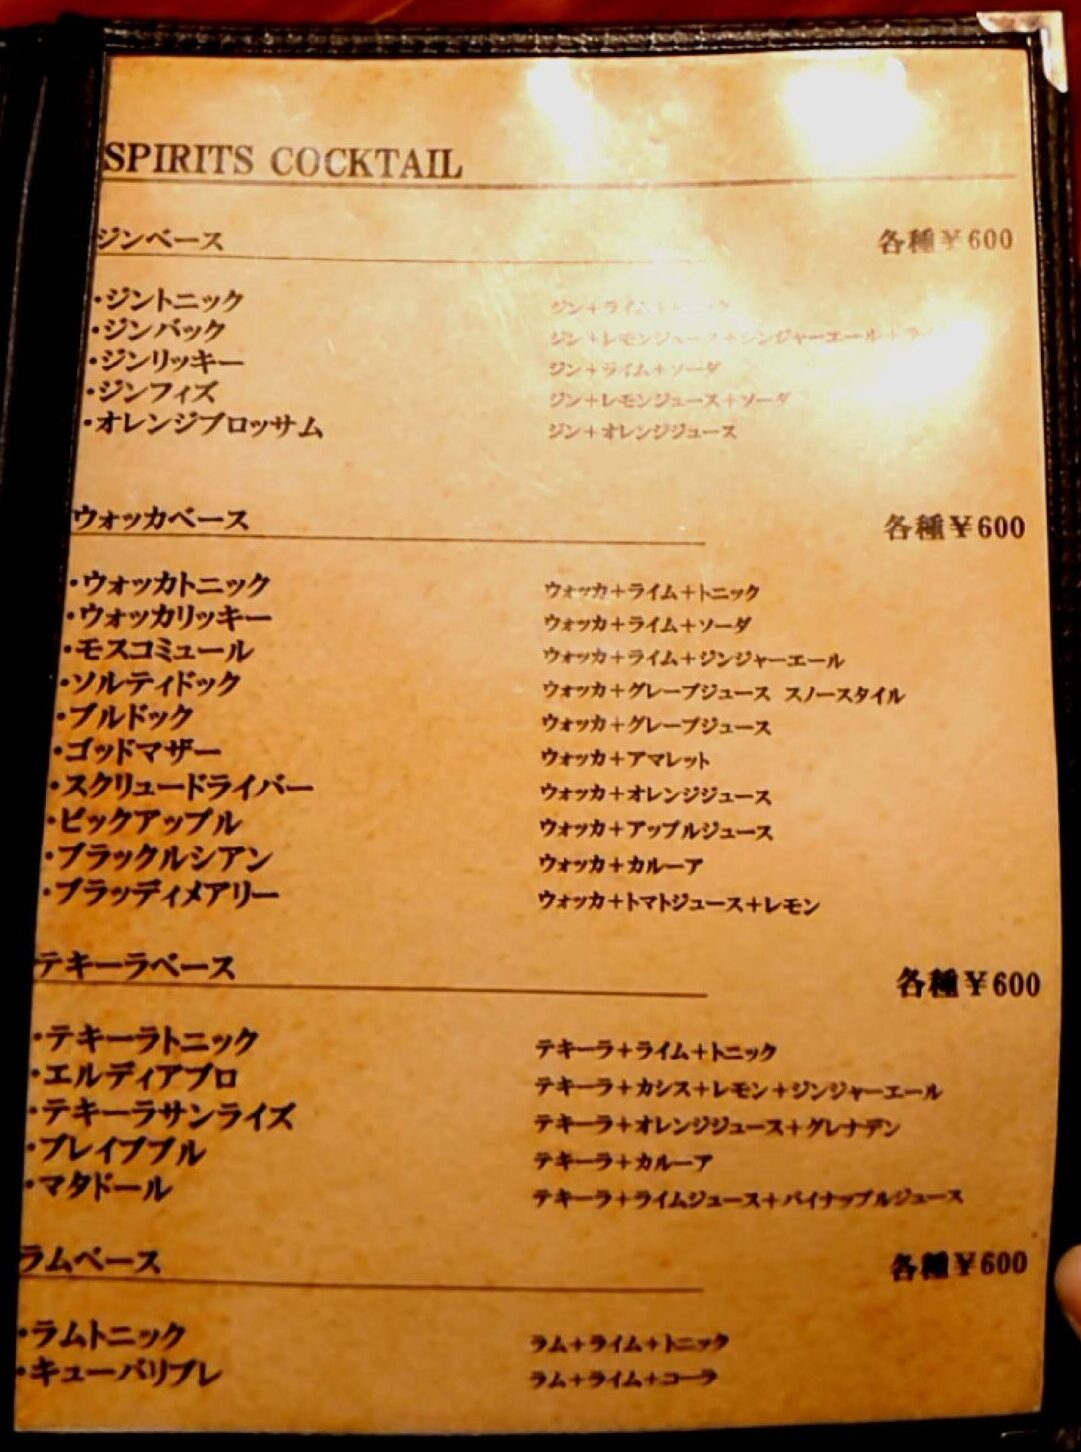 SPIRITS COCKTAIL
ジンベース 各種￥600
・ジントニック ジン＋ライム＋トニック
・ジンバック ジン＋レモンジュース＋ジンジャーエール＋
・ジンリッキー ジン＋ライム＋ソーダ
・ジンフィズ ジン＋レモンジュース＋ソーダ
・オレンジブロッサム ジン＋オレンジジュース
ウォッカベース 各種￥600
・ウォッカトニック ウォッカ＋ライム＋トニック
・ウォッカリッキー ウォッカ＋ライム＋ソーダ
・モスコミュール ウォッカ＋ライム＋ジンジャーエール
・ソルティドック ウォッカ＋グレープジュース スノースタイル
・ブルドック ウォッカ＋グレープジュース
・ゴッドマザー ウォッカ＋アマレット
・スクリュードライバー ウォッカ＋オレンジジュース
・ビックアップル ウォッカ＋アップルジュース
・ブラックルシアン ウォッカ＋カルーア
・ブラッディメアリー ウォッカ＋トマトジュース＋レモン
テキーラベース 各種￥600
・テキーラトニック テキーラ＋ライム＋トニック
・エルディアブロ テキーラ＋カシス＋レモン＋ジンジャーエール
・テキーラサンライズ テキーラ＋オレンジジュース＋グレナデン
・ブレイブブル テキーラ＋カルーア
・マタドール テキーラ＋ライムジュース＋パイナップルジュース
ラムベース 各種￥600
・ラムトニック ラム＋ライム＋トニック
・キューバリブレ ラム＋ライム＋コーラ